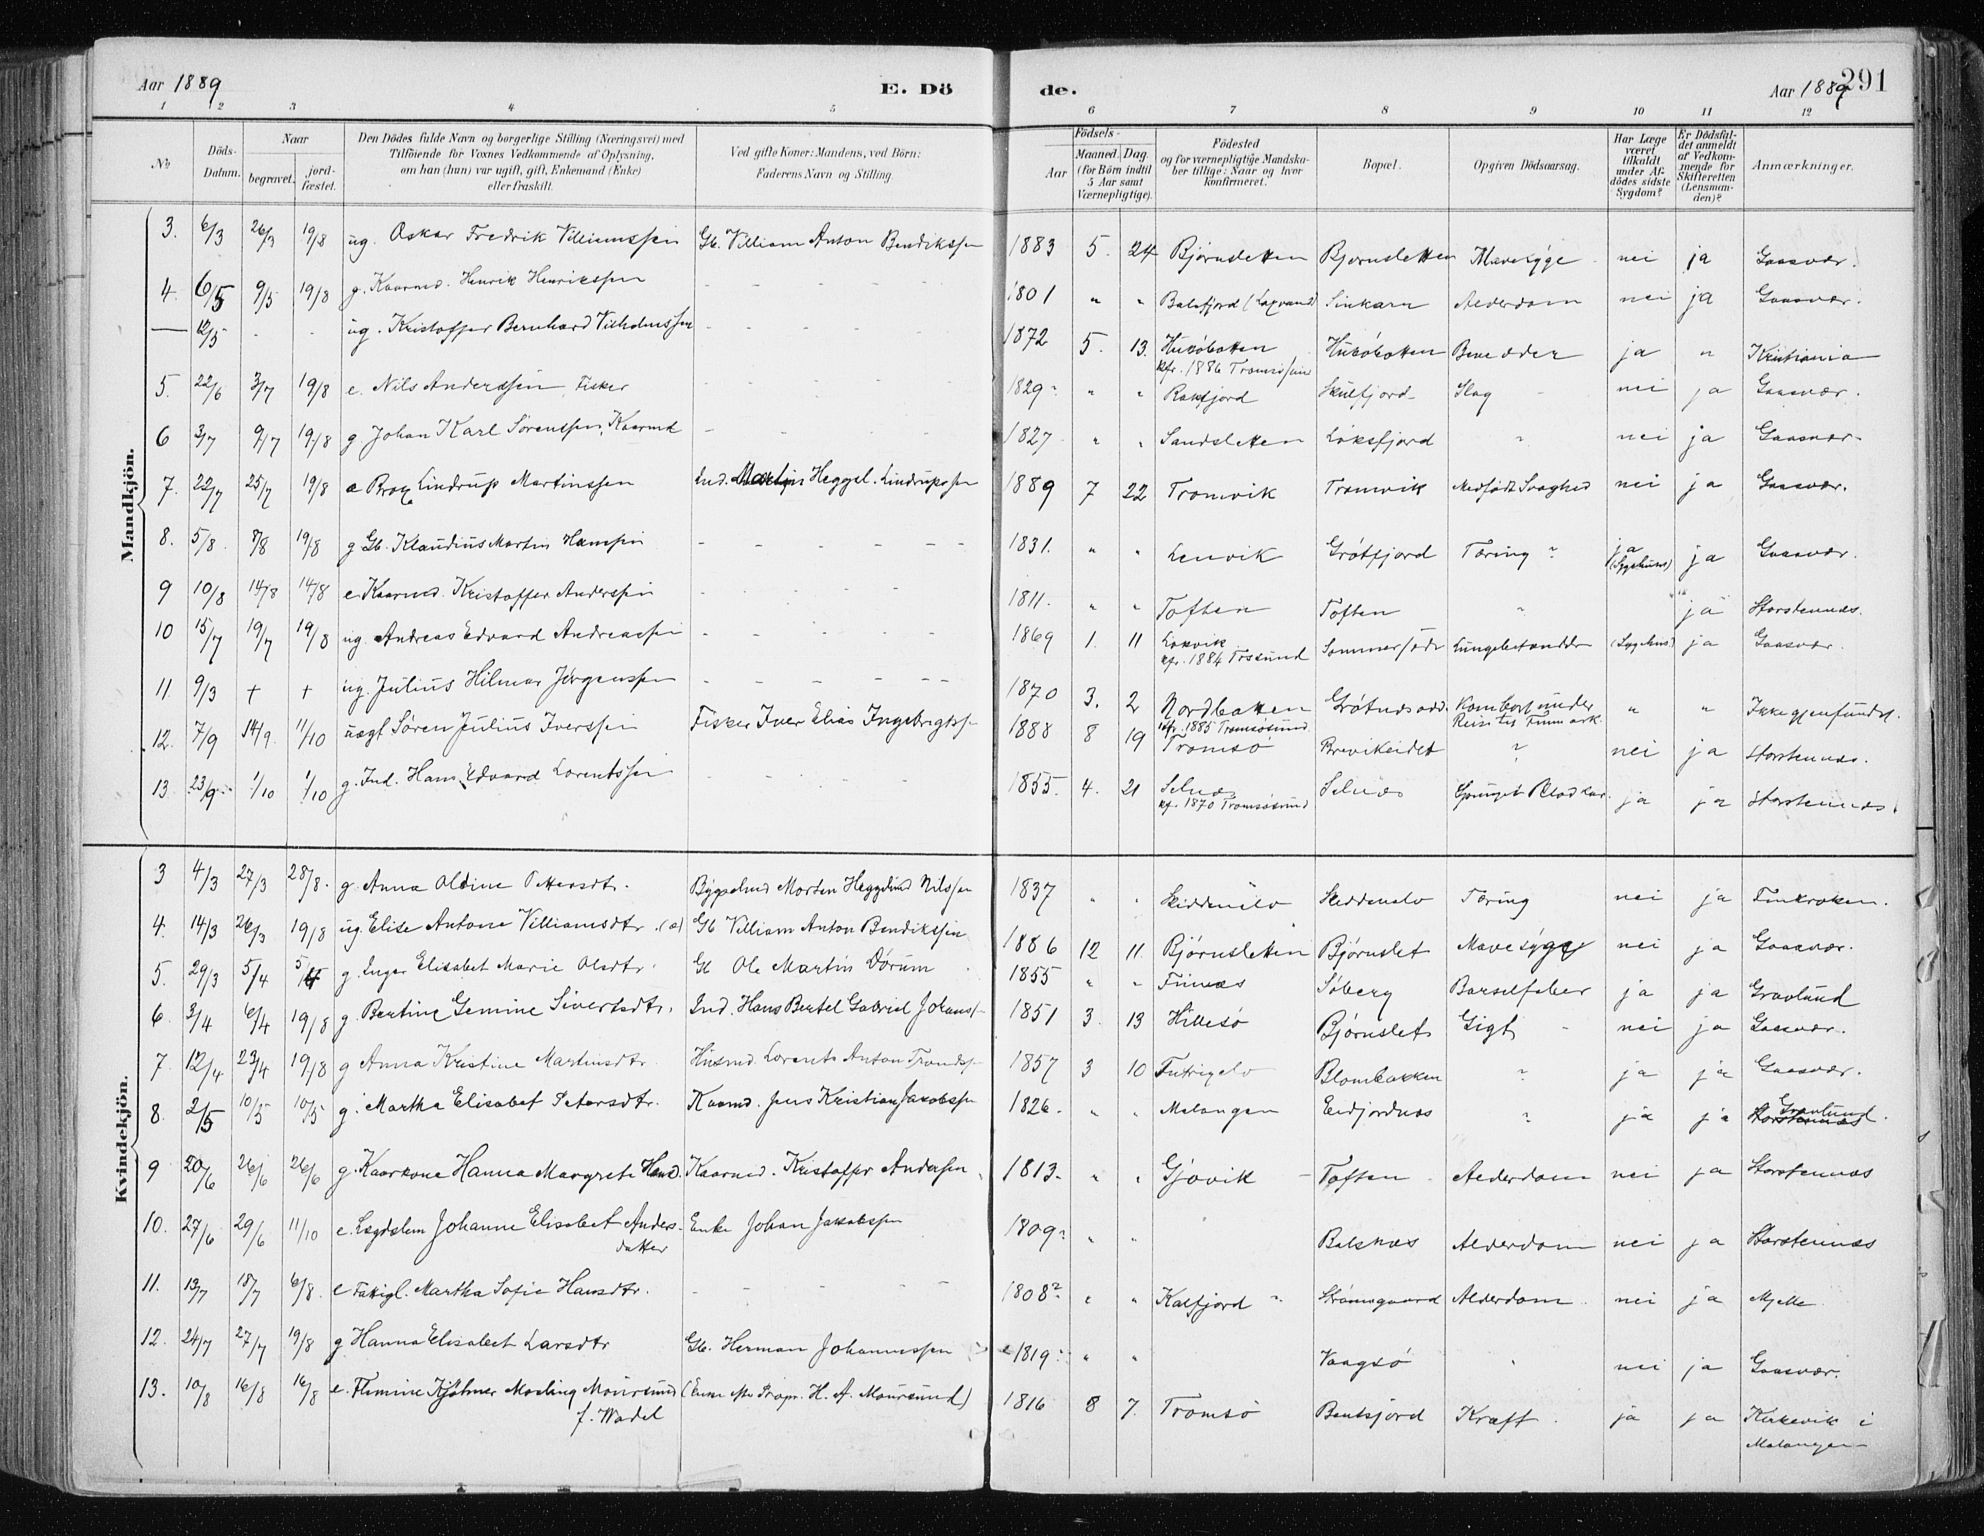 Aar 1889 E. Dö de. Aar 1889 291
1 2 3 4 5 6 7 8 9 10 11 12
No
Döds-Datum.
Naar
begravet. jord-fæstet.
Den Dödes fulde Navn og borgerlige Stilling (Næringsvei) med
Tilföiende for Voxnes Vedkommende af Oplysning,
om han (hun) var ugift, gift, Enkemand (Enke)
eller fraskilt.
Ved gifte Koner: Mandens, ved Börn:
Faderens Navn og Stilling.
Födsels-
Aar Maaned. Dag.
(for Börn indtil
5 Aar samt
Værnepligtige).
Födested
og for værnepligtige Mandska-
ber tillige: Naar og hvor
konfirmeret.
Bopæl.
Opgiven Dödsaarsag.
Har Læge
været
tilkaldt
under Af-
dödes sidste
Sygdom?
Er Dödsfal-
det anmeldt
af Vedkom-
mende for
Skifteretten
(Lensman-
den)?
Anmærkninger.
Mandkjön.
3. 6/3 26/3 19/8 ug. Oskar Fredrik Villiamssen Gb. Villiam Anton Bendikssen 1883 5. 24 Bjørnsletten Bjørnsletten Mavesyge nei ja Gaasvær.
4. 6/5 9/5 19/8 g. Kaarmd. Henrik Henrikssen - - - 1801 " " Balsfjord (Laxvand) Sinkarn Alderdom nei ja Gaasvær.
— 12/5 - - ug. Kristoffer Bernhard Vilhelmssen - - - 1872 5. 13. Hukøbakken Hukøbakken Benedder ja " Kristiania
kfr. 1886 Tromsøsund
5. 22/6 3/7 19/8 e. Nils Anderssen, Fisker 1829 " " Rakfjord Skulfjord Slag nei ja Gaasvær.
6 3/7 9/7 19/8 g Johan Karl Sørenssen, Kaarmd - - - 1827 " " Sandsletten Løksfjord " nei ja Gaasvær.
7. 22/7 25/7 19/8 æ Brox Lindrup Martinssen Ind. Martin Heggel. Lindrupssen 1889 7 22 Tromvik Tromvik Medfødt Svaghed nei ja Gaasvær.
8. 5/8. 8/8 19/8 g Gb. Klaudius Martin Hanssen - - - 1831. " " Lenvik Grøtfjord Tæring ? ja (Sygehuus) ja Gaasvær.
9 10/8 14/8 14/8 e Kaarmd. Kristoffer Anderssen - - - 1811. " " Toften Toften " " ja Storstennæs.
10 15/7 19/7 19/8 ug. Andreas Edvard Andreassen - - - 1869 1. 11 Laxvik Sommerfæder Lungebetændelse (Sygehus) ja Gaasvær.
kfr. 1884 Tossund
11. 9/3 + + ug. Julius Hilmar Jørgenssen - - - 1870 3. 2 Nordbakken Grøtnesodd. Kombort under " " Ikke gjenfundet.
kfr. 1885 Tromsøsund Reis til Finmark
12. 7/9 14/9. 11/10 uægt Søren Julius Iverssen Fisker Iver Elias Ingebrigtss 1888 8 19 Tromsø Breivikeidet ? nei ja Storstennæs.
13. 23/9 1/10 1/10 g. Ind. Hans Edvard Lorentssen - - - 1855. 4. 21 Selnæs Selnæs Sprunget Blodkar. ja ja Storstennæs.
kf. 1870 Tromsøsund
Kvindekjön.
3 4/3 27/3 28/8. g. Anna Oldine Pettersdtr. Bygselmd Morten Heggelund Nilssen 1837 " " Skiddenelv Skiddenelv Tæring nei ja Finkroken.
4. 14/3 26/3 19/8 ug. Elise Antone Villiamsdtr. (æ) Gb Villiam Anton Bendikssen 1886 12 11. Bjørnsletten Bjørnslet Mavesyge nei ja Gaasvær.
5. 29/3 5/4 5/4 g. Inger Elisabet Marie Olsdtr. Gb Ole Martin Dørum 1855 " " Finnæs Søberg Barselfeber ja ja Gravlund
6. 3/4 6/4 19/8 g. Bertine Gemine Sivertsdtr. Ind. Hans Bertel Gabriel Johanss 1851 3. 13 Hillesø Bjørnslet Gigt nei ja Gaasvær.
7. 12/4 23/4 19/8 g Anna Kristine Martinsdtr. Husmd Lorents Anton Trondss 1857 3 10 Futrigelv Blombakken ? ja ja Gaasvær.
8. 2/5 10/5 10/5 g. Martha Elisabet Petersdtr. Kaarmd. Jens Kristian Jakobssen 1826. " " Malangen Eidjordnæs ? ja ja Storstennæs Gravlund.
9 20/6 26/6 26/6 g. Kaarkone Hanna Margrete Hansd. Kaarmd. Kristoffer Anderssen 1813. " " Gjøvik Toften Alderdom nei ja Storstennæs
10. 27/6 29/6 11/10 e. Lægdslem Johanne Elisabet Anders- Enke Johan Jakobssen 1809 " " Balsnæs Alderdom nei ja Storstennæs
datter
11. 13/7 18/7 6/8. e Fattigl. Martha Sofie Hansdtr. - - - 1808 ? " " Kalfjord ? Strømsgaard Alderdom nei ja Mjelle
12. 24/7 27/7 19/8 g Hanna Elisabet Larsdtr Gb. Herman Johannessen 1819 " " Vaagsø " nei ja Gaasvær.
13. 10/8 16/8 16/8 e. Flemine Hjølmer Moursund (Enke efter Propr. H. A. Moursund) 1816 8 7. Tromsø Bentsjord Kræft ja ja Kirkevik i
f. Wadel Malangen